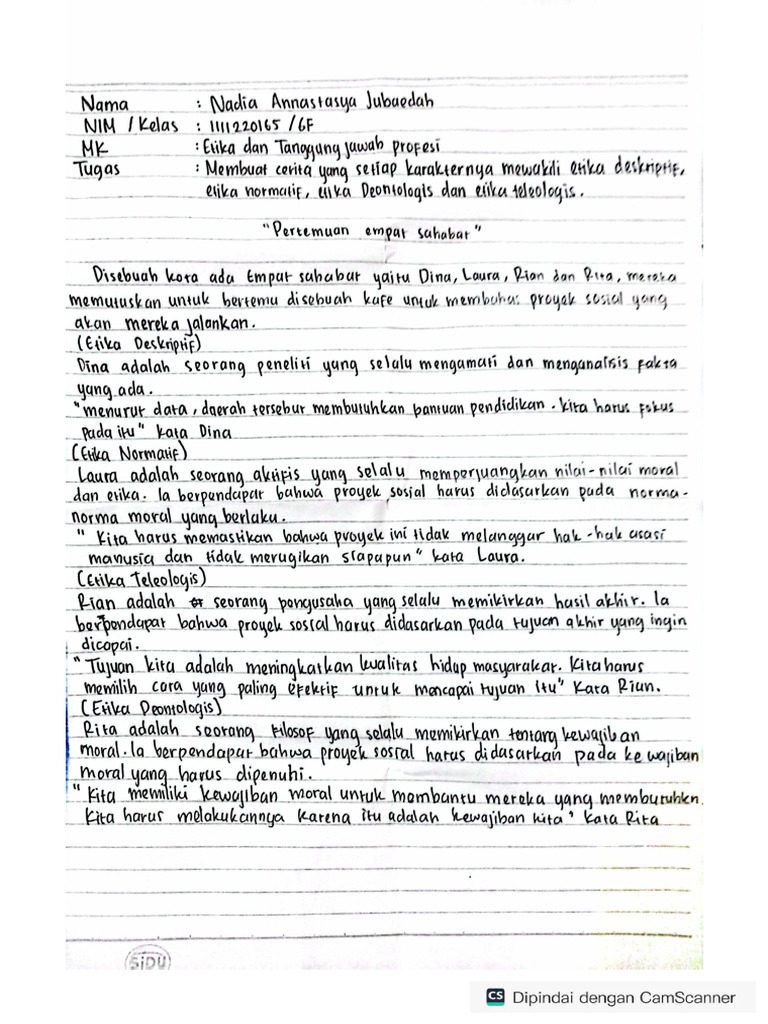 Nama : Nadia Annastasya Jubaedah
NIM / Kelas : 1111220165 / 6F
MK : Etika dan Tanggung jawab profesi
Tugas : Membuat cerita yang setiap karakternya mewakili etika deskriptif,
etika normatif, etika Deontologis dan etika teleologis.
"Pertemuan empat sahabat"
Disebuah kota ada Empat sahabat yaitu Dina, Laura, Rian dan Rita, mereka
memutuskan untuk bertemu disebuah kafe untuk membahas proyek sosial yang
akan mereka jalankan.
(Etika Deskriptif)
Dina adalah seorang peneliti yang selalu mengamati dan menganalisis fakta
yang ada.
"menurut data, daerah tersebut membutuhkan bantuan pendidikan. kita harus fokus
pada itu" kata Dina
(Etika Normatif)
Laura adalah seorang aktifis yang selalu memperjuangkan nilai-nilai moral
dan etika. Ia berpendapat bahwa proyek sosial harus didasarkan pada norma-
norma moral yang berlaku.
" Kita harus memastikan bahwa proyek ini tidak melanggar hak-hak asasi
manusia dan tidak merugikan siapapun" kata Laura.
(Etika Teleologis)
Rian adalah seorang pengusaha yang selalu memikirkan hasil akhir. Ia
berpendapat bahwa proyek sosial harus didasarkan pada tujuan akhir yang ingin
dicapai.
"Tujuan kita adalah meningkatkan kualitas hidup masyarakat. Kita harus
memilih cara yang paling efektif untuk mencapai tujuan itu" Kata Rian.
(Etika Deontologis)
Rita adalah seorang filosof yang selalu memikirkan tentang kewajiban
moral. Ia berpendapat bahwa proyek sosial harus didasarkan pada kewajiban
moral yang harus dipenuhi.
" Kita memiliki kewajiban moral untuk membantu mereka yang membutuhkn.
Kita harus melakukannya karena itu adalah kewajiban kita" Kata Rita
SiDU
CS Dipindai dengan CamScanner